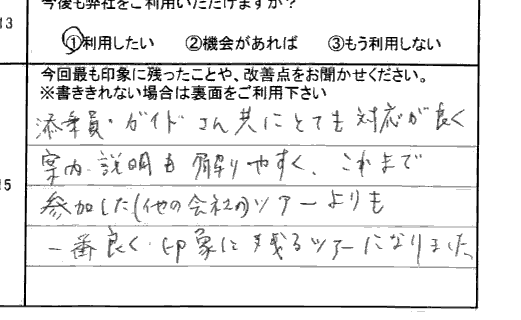 今後も弊社をご利用いただけますか？
13
①利用したい ②機会があれば ③もう利用しない
今回最も印象に残ったことや、改善点をお聞かせください。
※書ききれない場合は裏面をご利用下さい
15
添乗員・ガイドさん共にとても対応が良く
案内・説明も解りやすく、これまで
参加した(他の会社の)ツアーよりも
一番良く・印象に残るツアーになりました。